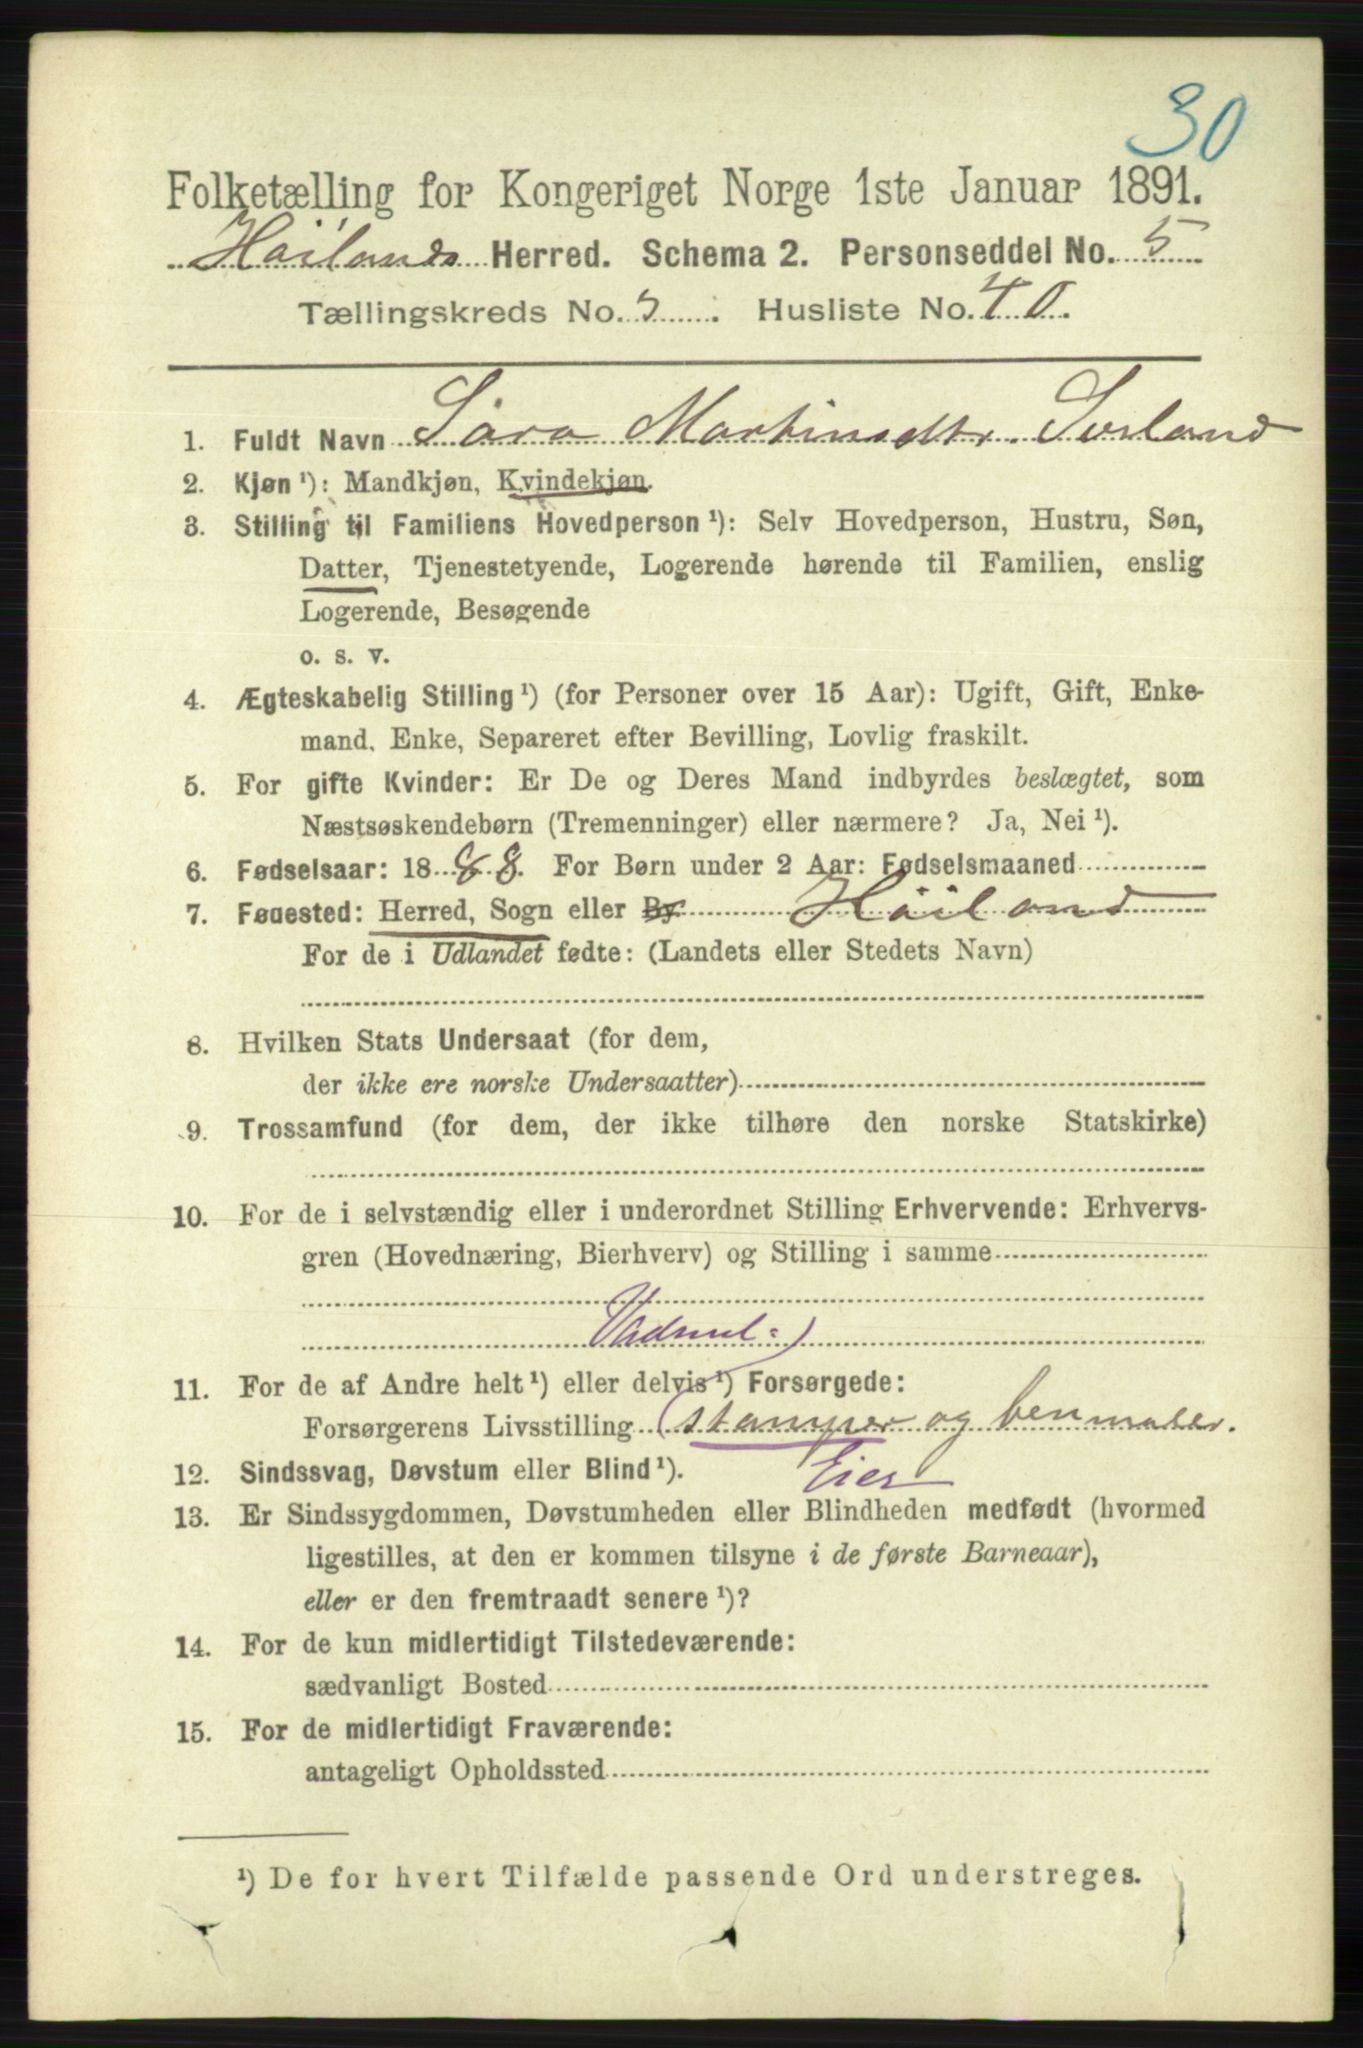 30
Folketælling for Kongeriget Norge 1ste Januar 1891.
Høilands Herred. Schema 2. Personseddel No. 5
Tællingskreds No. 5. Husliste No. 40.
1. Fuldt Navn Sara Martinsdtr. Sorland
2. Kjøn ¹): Mandkjøn, Kvindekjøn.
3. Stilling til Familiens Hovedperson ¹): Selv Hovedperson, Hustru, Søn,
Datter, Tjenestetyende, Logerende hørende til Familien, enslig
Logerende, Besøgende
o. s. v.
4. Ægteskabelig Stilling ¹) (for Personer over 15 Aar): Ugift, Gift, Enke-
mand, Enke, Separeret efter Bevilling, Lovlig fraskilt.
5. For gifte Kvinder: Er De og Deres Mand indbyrdes beslægtet, som
Næstsøskendebørn (Tremenninger) eller nærmere? Ja, Nei ¹).
6. Fødselsaar: 1888. For Børn under 2 Aar: Fødselsmaaned
7. Fødested: Herred, Sogn eller By Høiland
For de i Udlandet fødte: (Landets eller Stedets Navn)
8. Hvilken Stats Undersaat (for dem,
der ikke ere norske Undersaatter)
9. Trossamfund (for dem, der ikke tilhøre den norske Statskirke)
10. For de i selvstændig eller i underordnet Stilling Erhvervende: Erhvervs-
gren (Hovednæring, Bierhverv) og Stilling i samme
Vadmel-)
11. For de af Andre helt ¹) eller delvis ¹) Forsørgede:
Forsørgerens Livsstilling (stamper og benmaler.
12. Sindssvag, Døvstum eller Blind ¹). Eier
13. Er Sindssygdommen, Døvstumheden eller Blindheden medfødt (hvormed
ligestilles, at den er kommen tilsyne i de første Barneaar),
eller er den fremtraadt senere ¹)?
14. For de kun midlertidigt Tilstedeværende:
sædvanligt Bosted
15. For de midlertidigt Fraværende:
antageligt Opholdssted
¹) De for hvert Tilfælde passende Ord understreges.